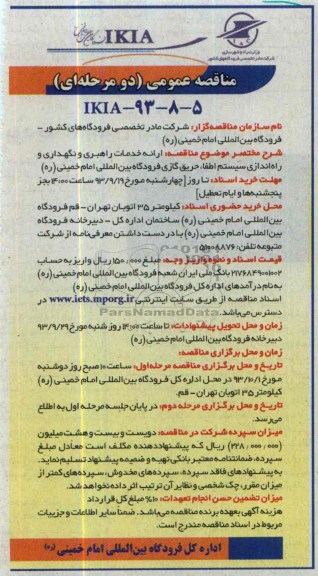 IKIA
وزارت راه و شهرسازی
شرکت مادر تخصصی فرودگاههای کشور
مناقصه عمومی (دو مرحله‌ای)
IKIA-۹۳-۸-۵
نام سازمان مناقصه‌گزار: شرکت مادر تخصصی فرودگاه‌های کشور -
فرودگاه بین‌المللی امام خمینی (ره)
شرح مختصر موضوع مناقصه: ارائه خدمات راهبری و نگهداری و
راه‌اندازی سیستم اطفاء حریق گازی فرودگاه بین‌المللی امام خمینی (ره)
مهلت خرید اسناد: تا روز [چهارشنبه مورخ ۹۳/۹/۱۹ ساعت ۱۴:۰۰ بجز
پنجشنبه‌ها و ایام تعطیل]
محل خرید حضوری اسناد: کیلومتر ۳۵ اتوبان تهران - قم فرودگاه
بین‌المللی امام خمینی (ره) ساختمان اداره کل - دبیرخانه فرودگاه
بین‌المللی امام خمینی (ره) با در دست داشتن معرفی‌نامه از شرکت
متبوعه تلفن: ۵۱۰۰۸۸۷۶
قیمت اسناد و نحوه واریز وجه: مبلغ ۱۵۰,۰۰۰ ریال واریز به حساب
بانک ملی ایران شعبه فرودگاه بین‌المللی امام خمینی (ره)
به نام درآمدهای اداره کل فرودگاه بین‌المللی امام خمینی (ره)
اسناد مناقصه از طریق سایت اینترنتی www.iets.mporg.ir در
دسترس می‌باشد.
ParsNamadData
زمان و محل تحویل پیشنهادات: تا ساعت ۱۴:۰۰ روز شنبه مورخ ۹۳/۹/۲۹
دبیرخانه فرودگاه بین‌المللی امام خمینی (ره)
زمان و محل برگزاری مناقصه:
تاریخ و محل برگزاری مناقصه مرحله اول: ساعت ۱۰ صبح روز دوشنبه
مورخ ۹۳/۱۰/۱ در محل اداره کل فرودگاه بین‌المللی امام خمینی (ره)
کیلومتر ۳۵ اتوبان تهران - قم.
تاریخ و محل برگزاری مرحله دوم: در پایان جلسه مرحله اول به اطلاع
می‌رسد.
میزان سپرده شرکت در مناقصه: دویست و بیست و هشت میلیون
(۲۲۸,۰۰۰,۰۰۰) ریال که پیشنهاددهنده مکلف است معادل مبلغ
سپرده، ضمانتنامه معتبر بانکی تهیه و ضمیمه پیشنهاد تسلیم نماید.
به پیشنهادهای فاقد سپرده، سپرده‌های مخدوش، سپرده‌های کمتر از
میزان مقرر، چک شخصی و نظایر آن ترتیب اثر داده نخواهد شد.
میزان تضمین حسن انجام تعهدات: ۱۰٪ مبلغ کل قرارداد
هزینه آگهی بعهده برنده مناقصه می‌باشد. ضمناً سایر اطلاعات و جزییات
مربوط در اسناد مناقصه مندرج است.
اداره کل فرودگاه بین‌المللی امام خمینی (ره)